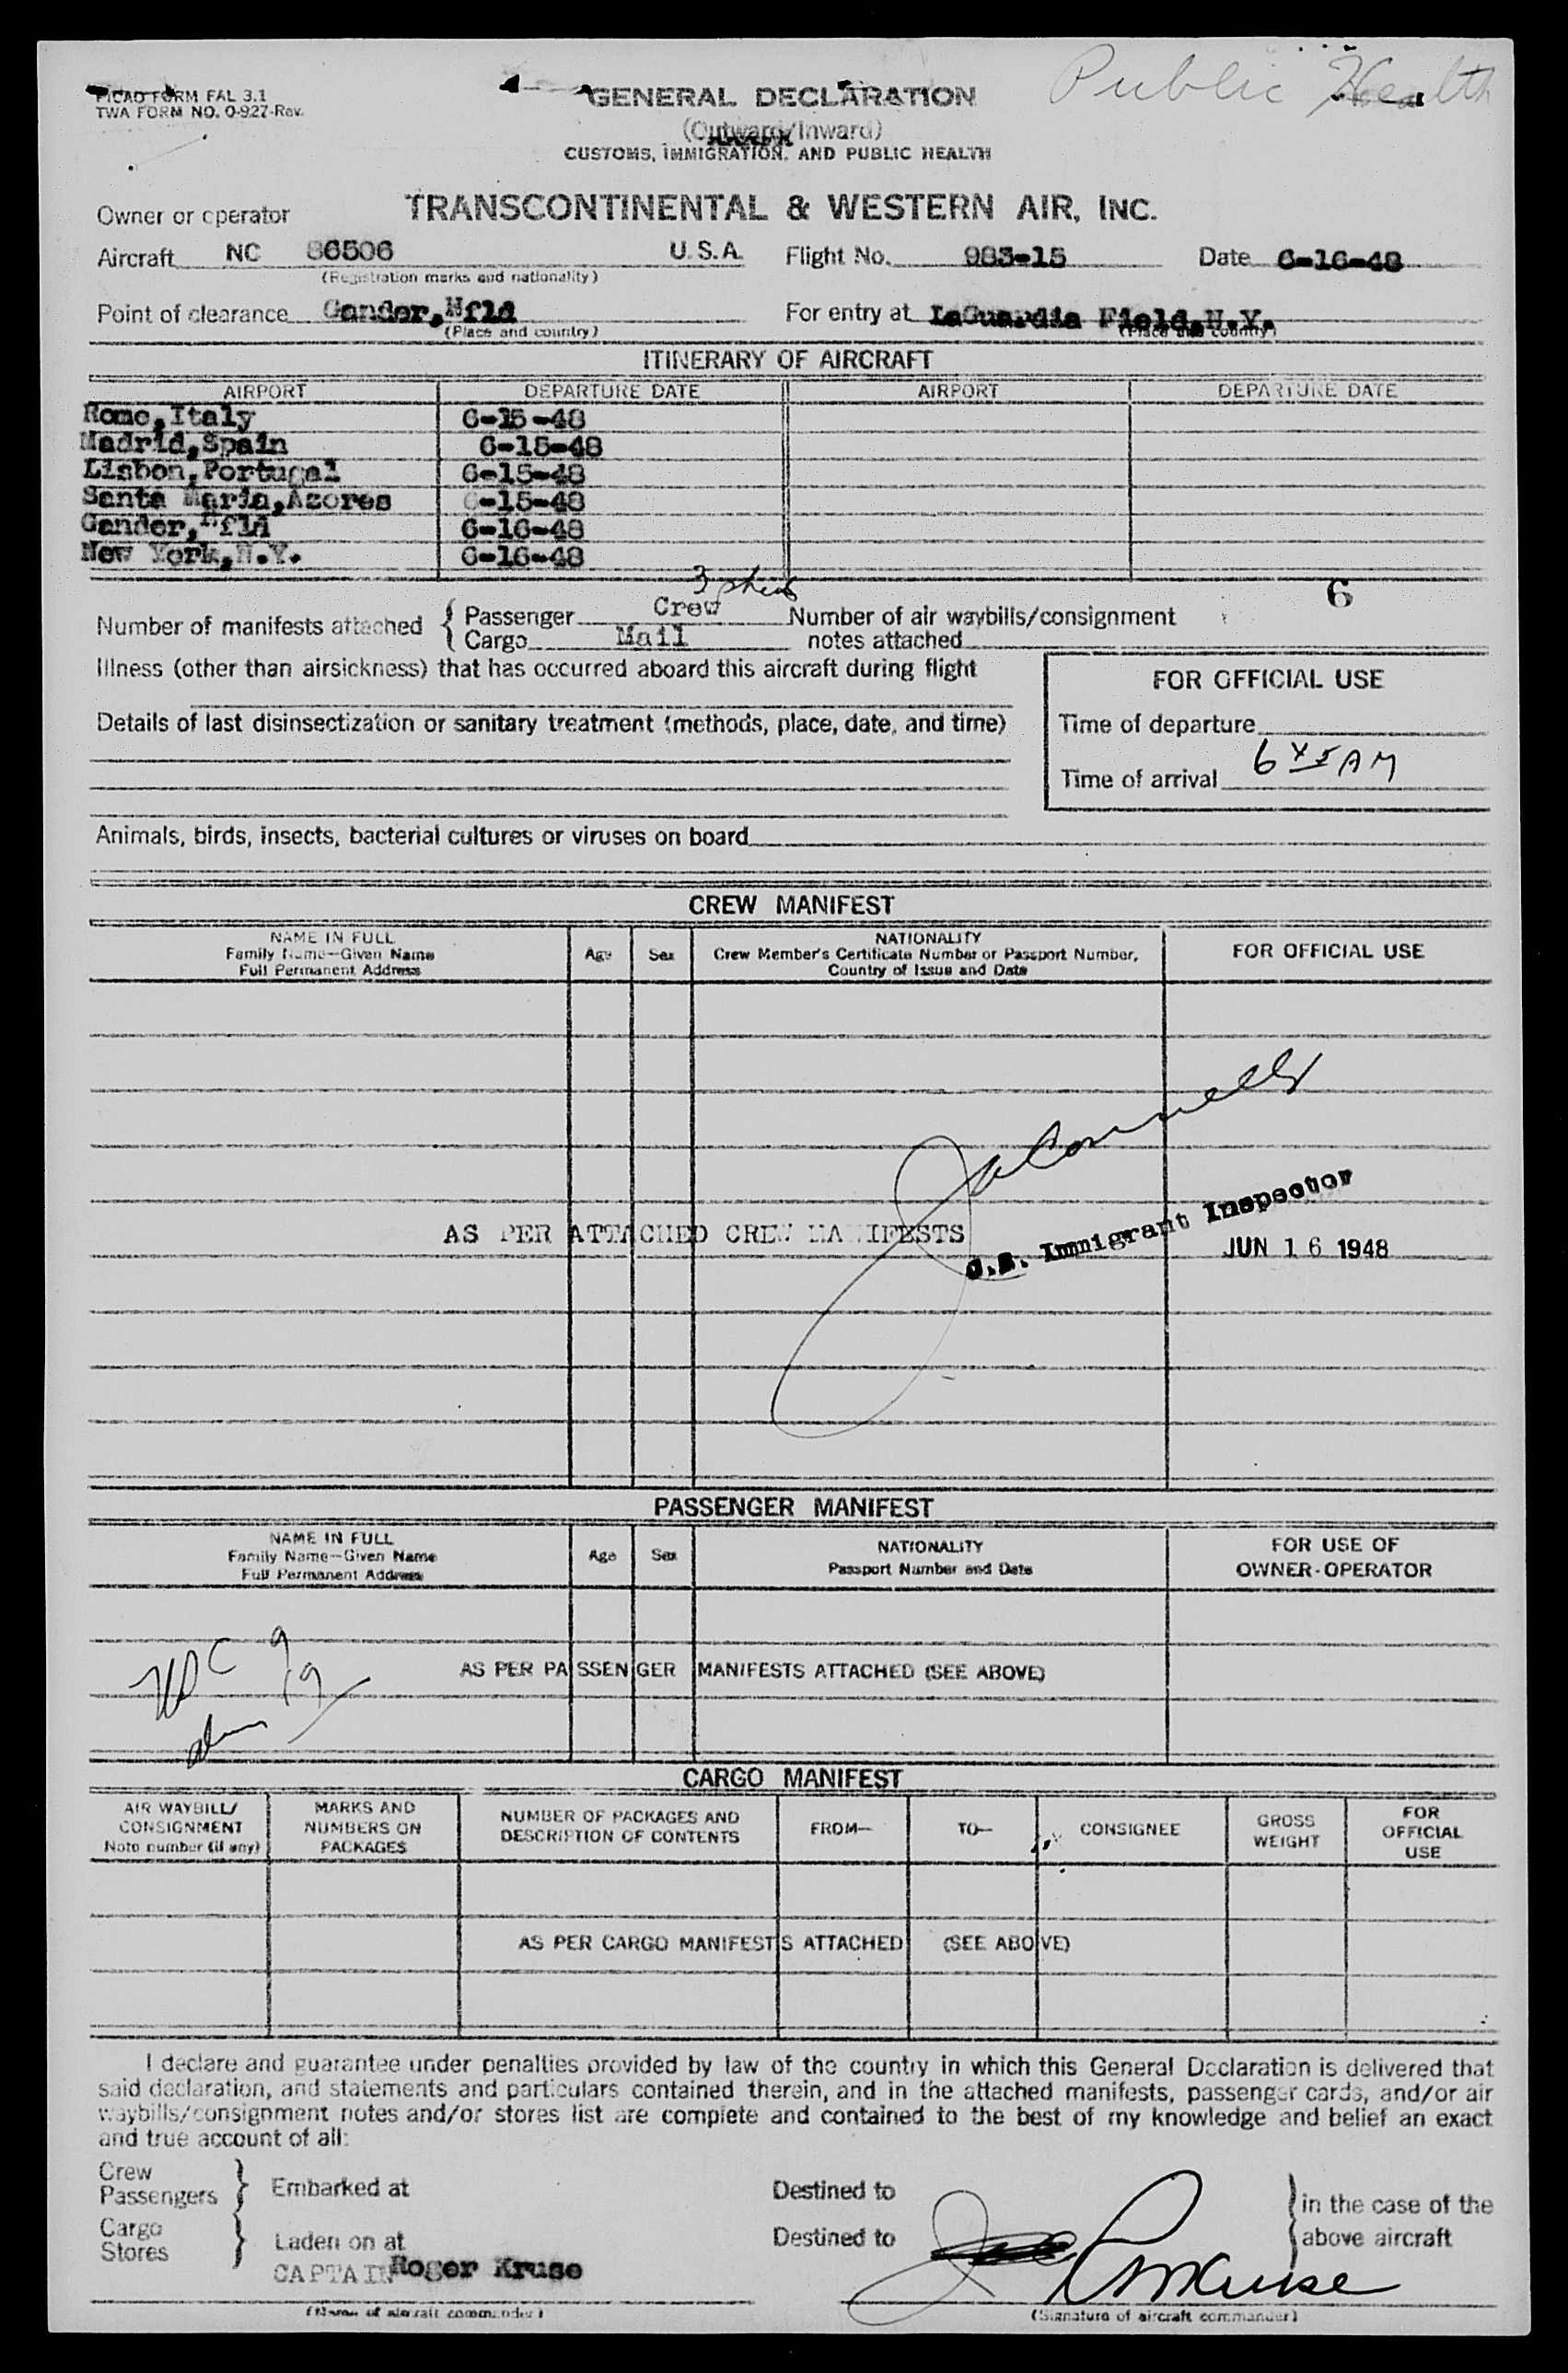 PICAO FORM FAL 3.1
TWA FORM NO. 0-927-Rev.
Public Health
GENERAL DECLARATION
(Outward/Inward)
CUSTOMS, IMMIGRATION, AND PUBLIC HEALTH
Owner or operator TRANSCONTINENTAL & WESTERN AIR, INC.
Aircraft NC 86506 U.S.A. Flight No. 983-15 Date 6-16-48
(Registration marks and nationality)
Point of clearance Gander,Nfld For entry at LaGuardia Field,N.Y.
(Place and country) (Place and country)
ITINERARY OF AIRCRAFT
AIRPORT DEPARTURE DATE AIRPORT DEPARTURE DATE
Rome,Italy 6-15-48
Madrid,Spain 6-15-48
Lisbon,Portugal 6-15-48
Santa Maria,Azores 6-15-48
Gander,Nfld 6-16-48
New York,N.Y. 6-16-48
3 sheets
6
Number of manifests attached { Passenger Crew Number of air waybills/consignment
Cargo Mail notes attached
Illness (other than airsickness) that has occurred aboard this aircraft during flight
FOR OFFICIAL USE
Details of last disinsectization or sanitary treatment (methods, place, date, and time)
Time of departure
Time of arrival 6 45 AM
Animals, birds, insects, bacterial cultures or viruses on board
CREW MANIFEST
NAME IN FULL
Family Name—Given Name
Full Permanent Address
Age
Sex
NATIONALITY
Crew Member's Certificate Number or Passport Number,
Country of Issue and Date
FOR OFFICIAL USE
AS PER ATTACHED CREW MANIFESTS
U.S. Immigrant Inspector
JUN 16 1948
PASSENGER MANIFEST
NAME IN FULL
Family Name—Given Name
Full Permanent Address
Age
Sex
NATIONALITY
Passport Number and Date
FOR USE OF
OWNER-OPERATOR
AS PER PASSENGER MANIFESTS ATTACHED (SEE ABOVE)
CARGO MANIFEST
AIR WAYBILL/
CONSIGNMENT
Note number (if any)
MARKS AND
NUMBERS ON
PACKAGES
NUMBER OF PACKAGES AND
DESCRIPTION OF CONTENTS
FROM—
TO—
CONSIGNEE
GROSS
WEIGHT
FOR
OFFICIAL
USE
AS PER CARGO MANIFESTS ATTACHED (SEE ABOVE)
I declare and guarantee under penalties provided by law of the country in which this General Declaration is delivered that
said declaration, and statements and particulars contained therein, and in the attached manifests, passenger cards, and/or air
waybills/consignment notes and/or stores list are complete and contained to the best of my knowledge and belief an exact
and true account of all:
Crew
Passengers } Embarked at Destined to
Cargo
Stores } Laden on at Destined to
} in the case of the
above aircraft
CAPTAIN Roger Kruse
(Name of aircraft commander)
(Signature of aircraft commander)